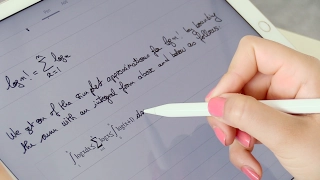 log n! = ∑ log x
n
x=1
We get one of the simplest approximations for log n! by bounding
the sum with an integral from above and below as follows:
∫ log x dx ≤ ∑ log x ≤ ∫ log(x+1) dx